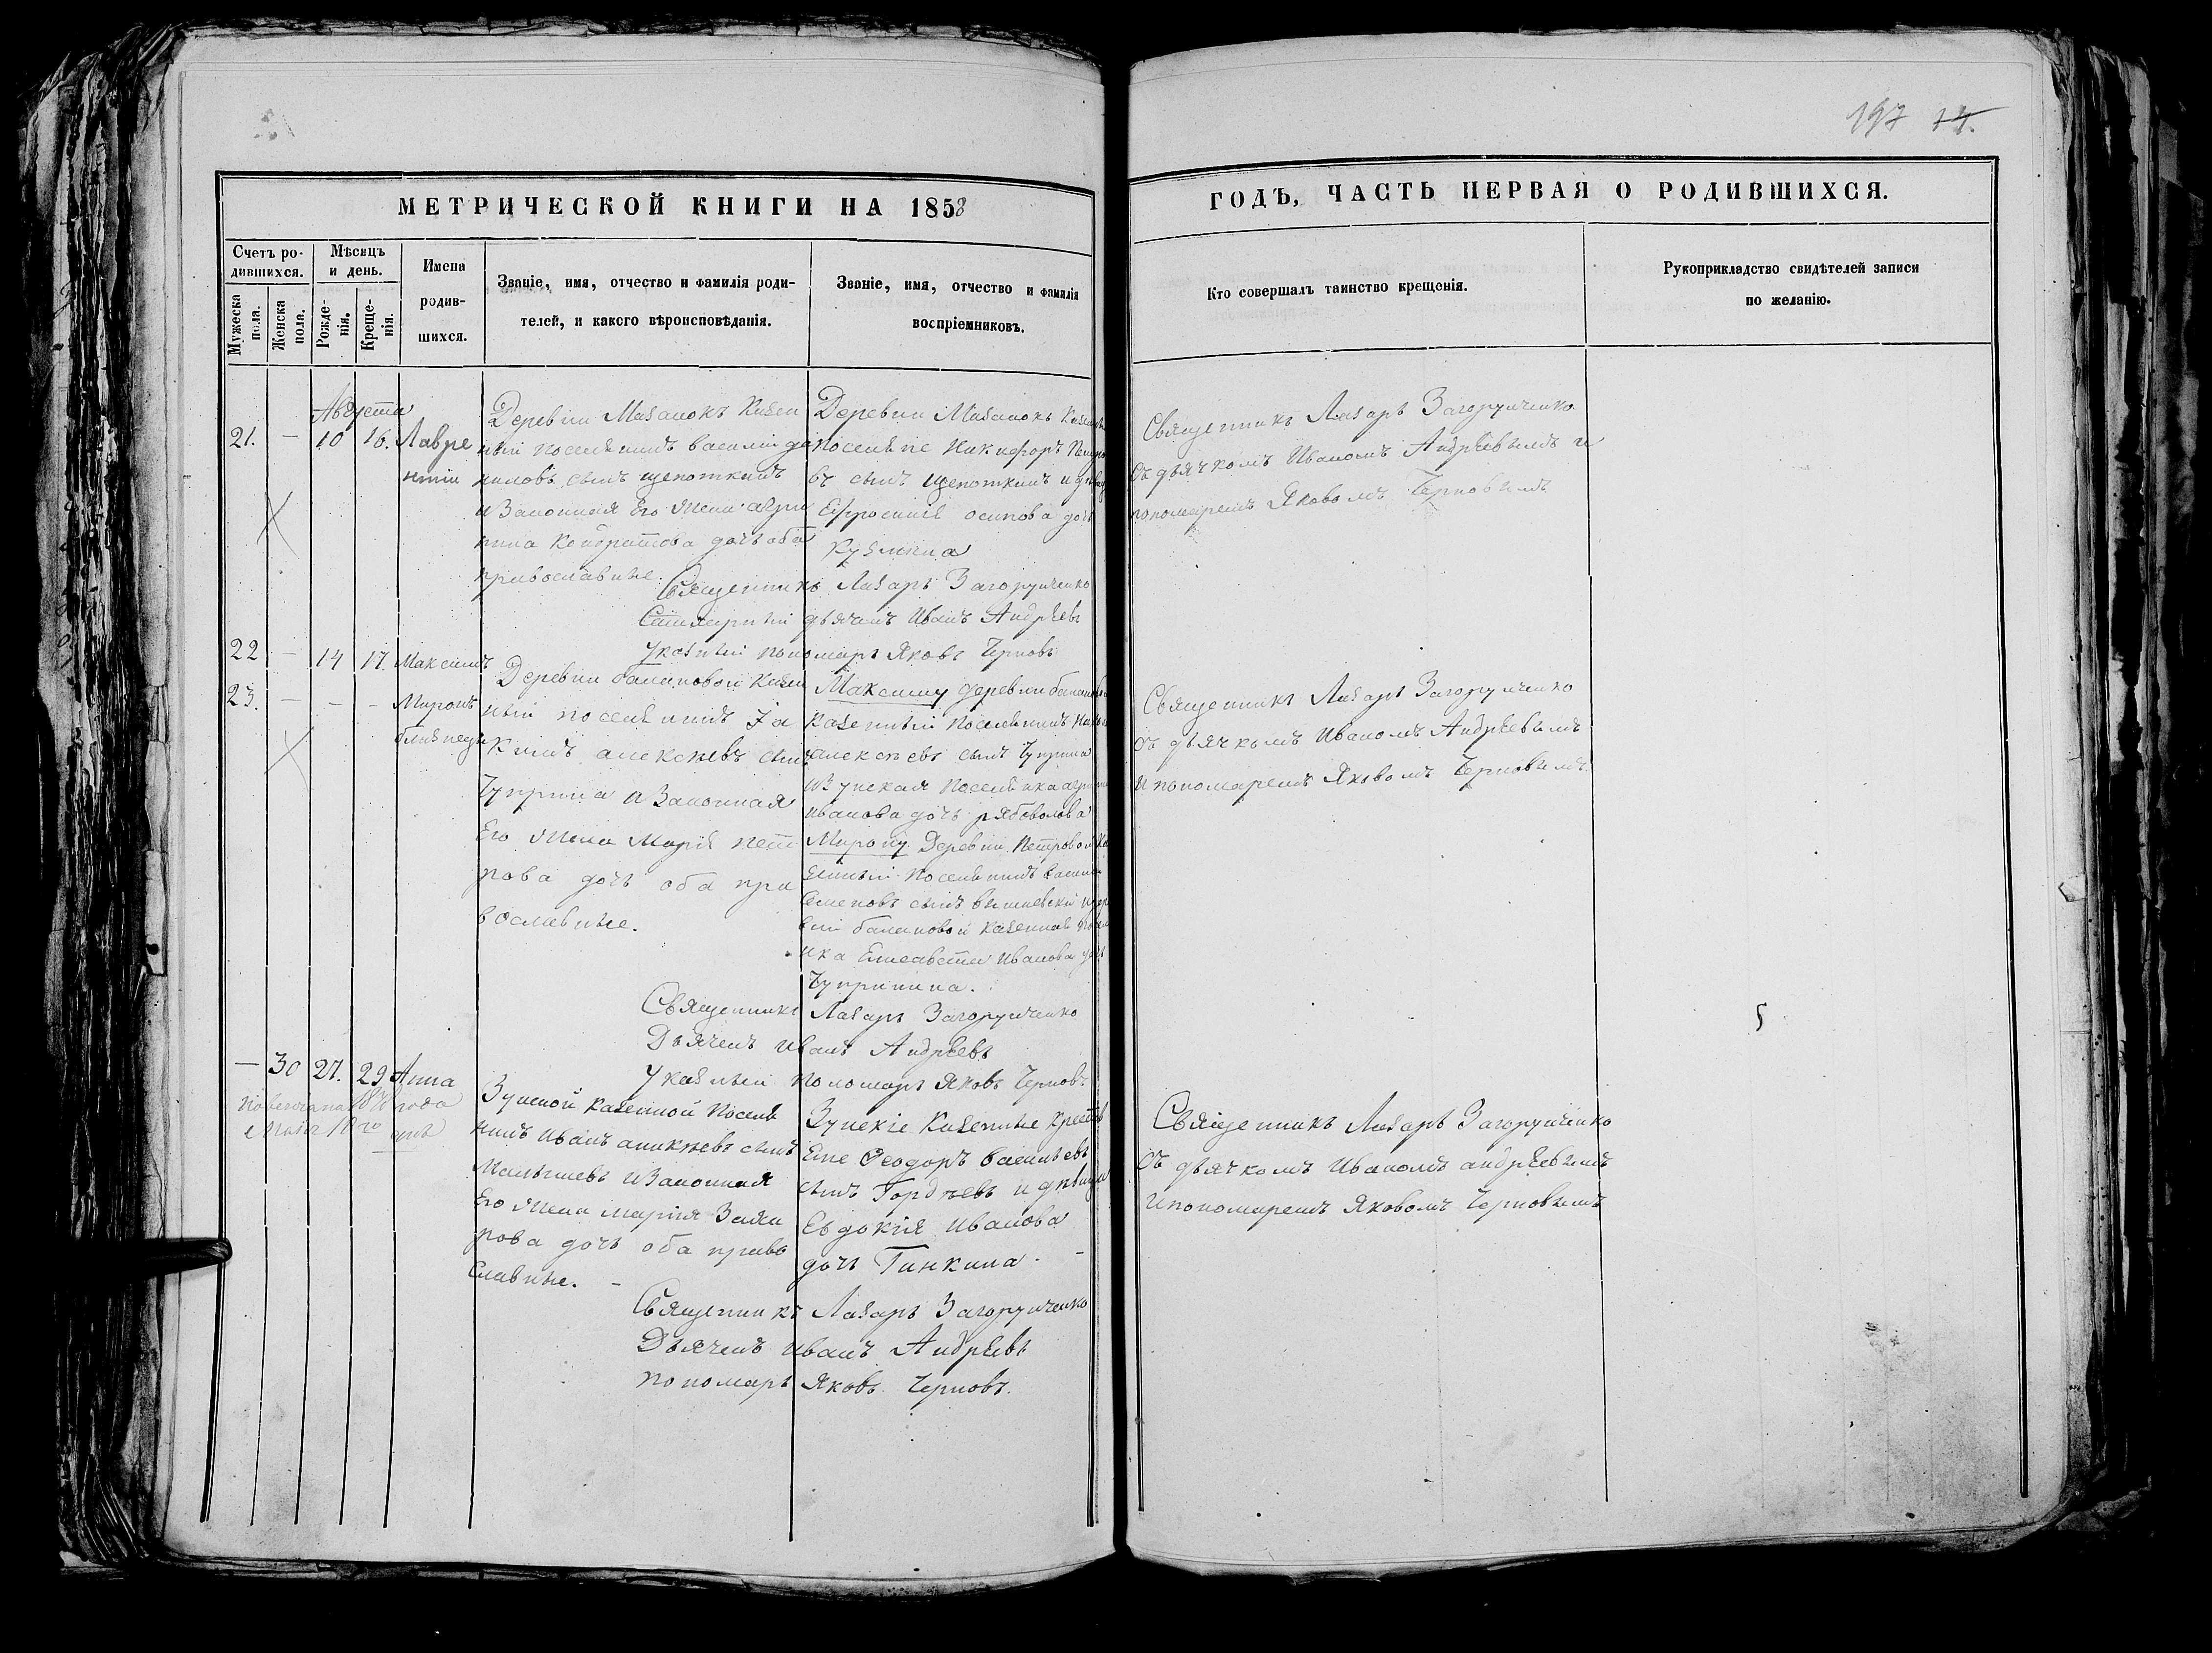 197 14.
МЕТРИЧЕСКОЙ КНИГИ НА 1858
ГОДЪ, ЧАСТЬ ПЕРВАЯ О РОДИВШИХСЯ.
Счетъ родившихся.
Мужеска пола.
Женска пола.
Мѣсяцъ и день.
Рожденія.
Крещенія.
Имена родившихся.
Званіе, имя, отчество и фамилія родителей, и какого вѣроисповѣданія.
Званіе, имя, отчество и фамилія воспріемниковъ.
Кто совершалъ таинство крещенія.
Рукоприкладство свидѣтелей записи по желанію.
Августа
21. — 10 16. Лавре
нтій
Деревни Мазанокъ Казен
ный поселянинъ василій да
ниловъ сынъ щепоткинъ
и Законная Его Жена агри
пина Кондратова дочь оба
православные.
Деревни Мазанокъ
поселяне Никифоръ
въ сынъ щепоткинъ и
Ефросинія осипова дочь
Кузмина
Священникъ Лазарь Загоруйченко
съ дьячкомъ Иваномъ Андрѣевымъ и
пономаремъ Яковомъ Черновымъ
Священникъ Лазарь Загоруйченко
дьячекъ Иванъ Андрѣевъ
Указный пономарь Яковъ Черновъ
22 — 14 17. Максимъ
23. — — — Миронъ
близнецы
Деревни балановой Казен
ный поселянинъ Іа
кимъ алексѣевъ сынъ
Чуприна и Законная
Его Жена Марія Пет
рова дочь оба пра
вославные.
Максиму деревни
Казенный поселянинъ
алексѣевъ сынъ Чуприна
и Зуиская поселянка
иванова дочь рябоволова
Мирону Деревни Петровой
зенный поселянинъ
Семеновъ сынъ
вни балановой казенная
нка Елисавета Иванова дочь
Чуприна.
Священникъ Лазарь Загоруйченко
съ дьячкомъ Иваномъ Андрѣевымъ
и пономаремъ Яковомъ Черновымъ.
Священникъ Лазарь Загоруйченко
Дьячекъ Иванъ Андрѣевъ
Указный пономарь Яковъ Черновъ
— 30 27. 29 Анна
года
Зуиской казенной Поселя
нинъ Иванъ аникѣевъ сынъ
Малышевъ и Законная
Его Жена Марія
рова дочь оба право
славные. —
Зуискіе Казенные Крестья
не Ѳеодоръ васильевъ
сынъ Гордѣевъ и дѣвица
Евдокія Иванова
дочь Ганкина —
Священникъ Лазарь Загоруйченко
съ дьячкомъ Иваномъ андрѣевымъ
и пономаремъ Яковомъ Черновымъ
Священникъ Лазарь Загоруйченко
Дьячекъ Иванъ Андрѣевъ
пономарь Яковъ Черновъ.